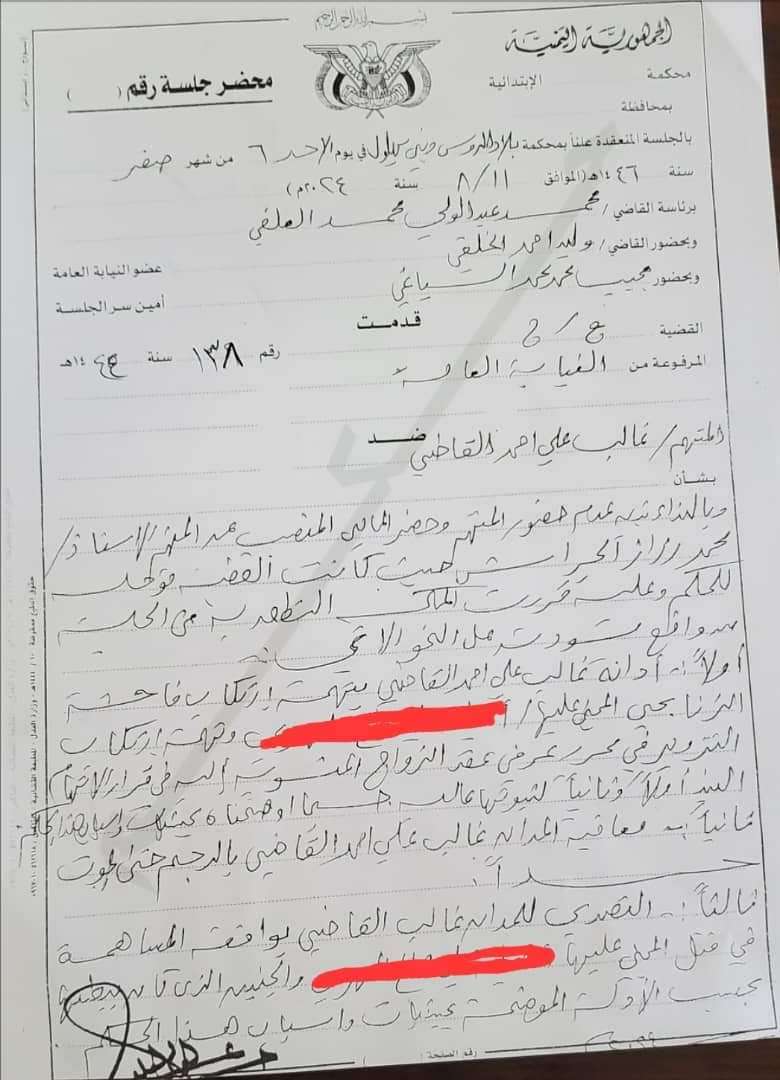 بسم الله الرحمن الرحيم
الجمهورية اليمنية
محكمة الإبتدائية
بمحافظة
محضر جلسة رقم ( )
بالجلسة المنعقدة علناً بمحكمة بلاد الروس وبني بهلول في يوم الاحد ٦ من شهر صفر
سنة ١٤٤٦هـ (الموافق ٨/١١ سنة ٢٠٢٤م)
برئاسة القاضي/ محمد عبدالولي محمد العلفي
وبحضور القاضي/ وليد احمد الخلقي عضو النيابة العامة
وبحضور مجيب محمد محمد السياغي أمين سر الجلسة
قدمت
القضية ج/ج رقم ١٣٨ سنة ١٤٤٥هـ
المرفوعة من النيابة العامة
ضد
المتهم/ غالب علي احمد القاضي
بشأن
وبالنداء تبين عدم حضور المتهم وحضر المحامي المنصب عن المتهم الاستاذ/
محمد الحراسي حيث كانت القضية مؤجلة
للحكم وعليه قررت المحكمة النطق به من الجلسة
من واقع مسودته على النحو الاتي
أولاً:- أدانة غالب علي احمد القاضي بتهمة ارتكاب فاحشة
الزنا بحق المجني عليها/ وتهمة ارتكاب
التزوير في محرر عرفي عقد الزواج المنسوبة إليه في قرار الاتهام
البند أولاً وثانياً لثبوتها عليه حسبما اوضحناه بحيثيات واسباب هذا الحكم
ثانياً:- معاقبة المدان غالب علي احمد القاضي بالرجم حتى الموت
حداً.
ثالثاً:- التصدي للمدان غالب القاضي بواقعة المساهمة
في قتل المجني عليها والجنين الذي كان ببطنها
بحسب الأدلة الموضحة بحيثيات واسباب هذا الحكم
رقم الصفحة (